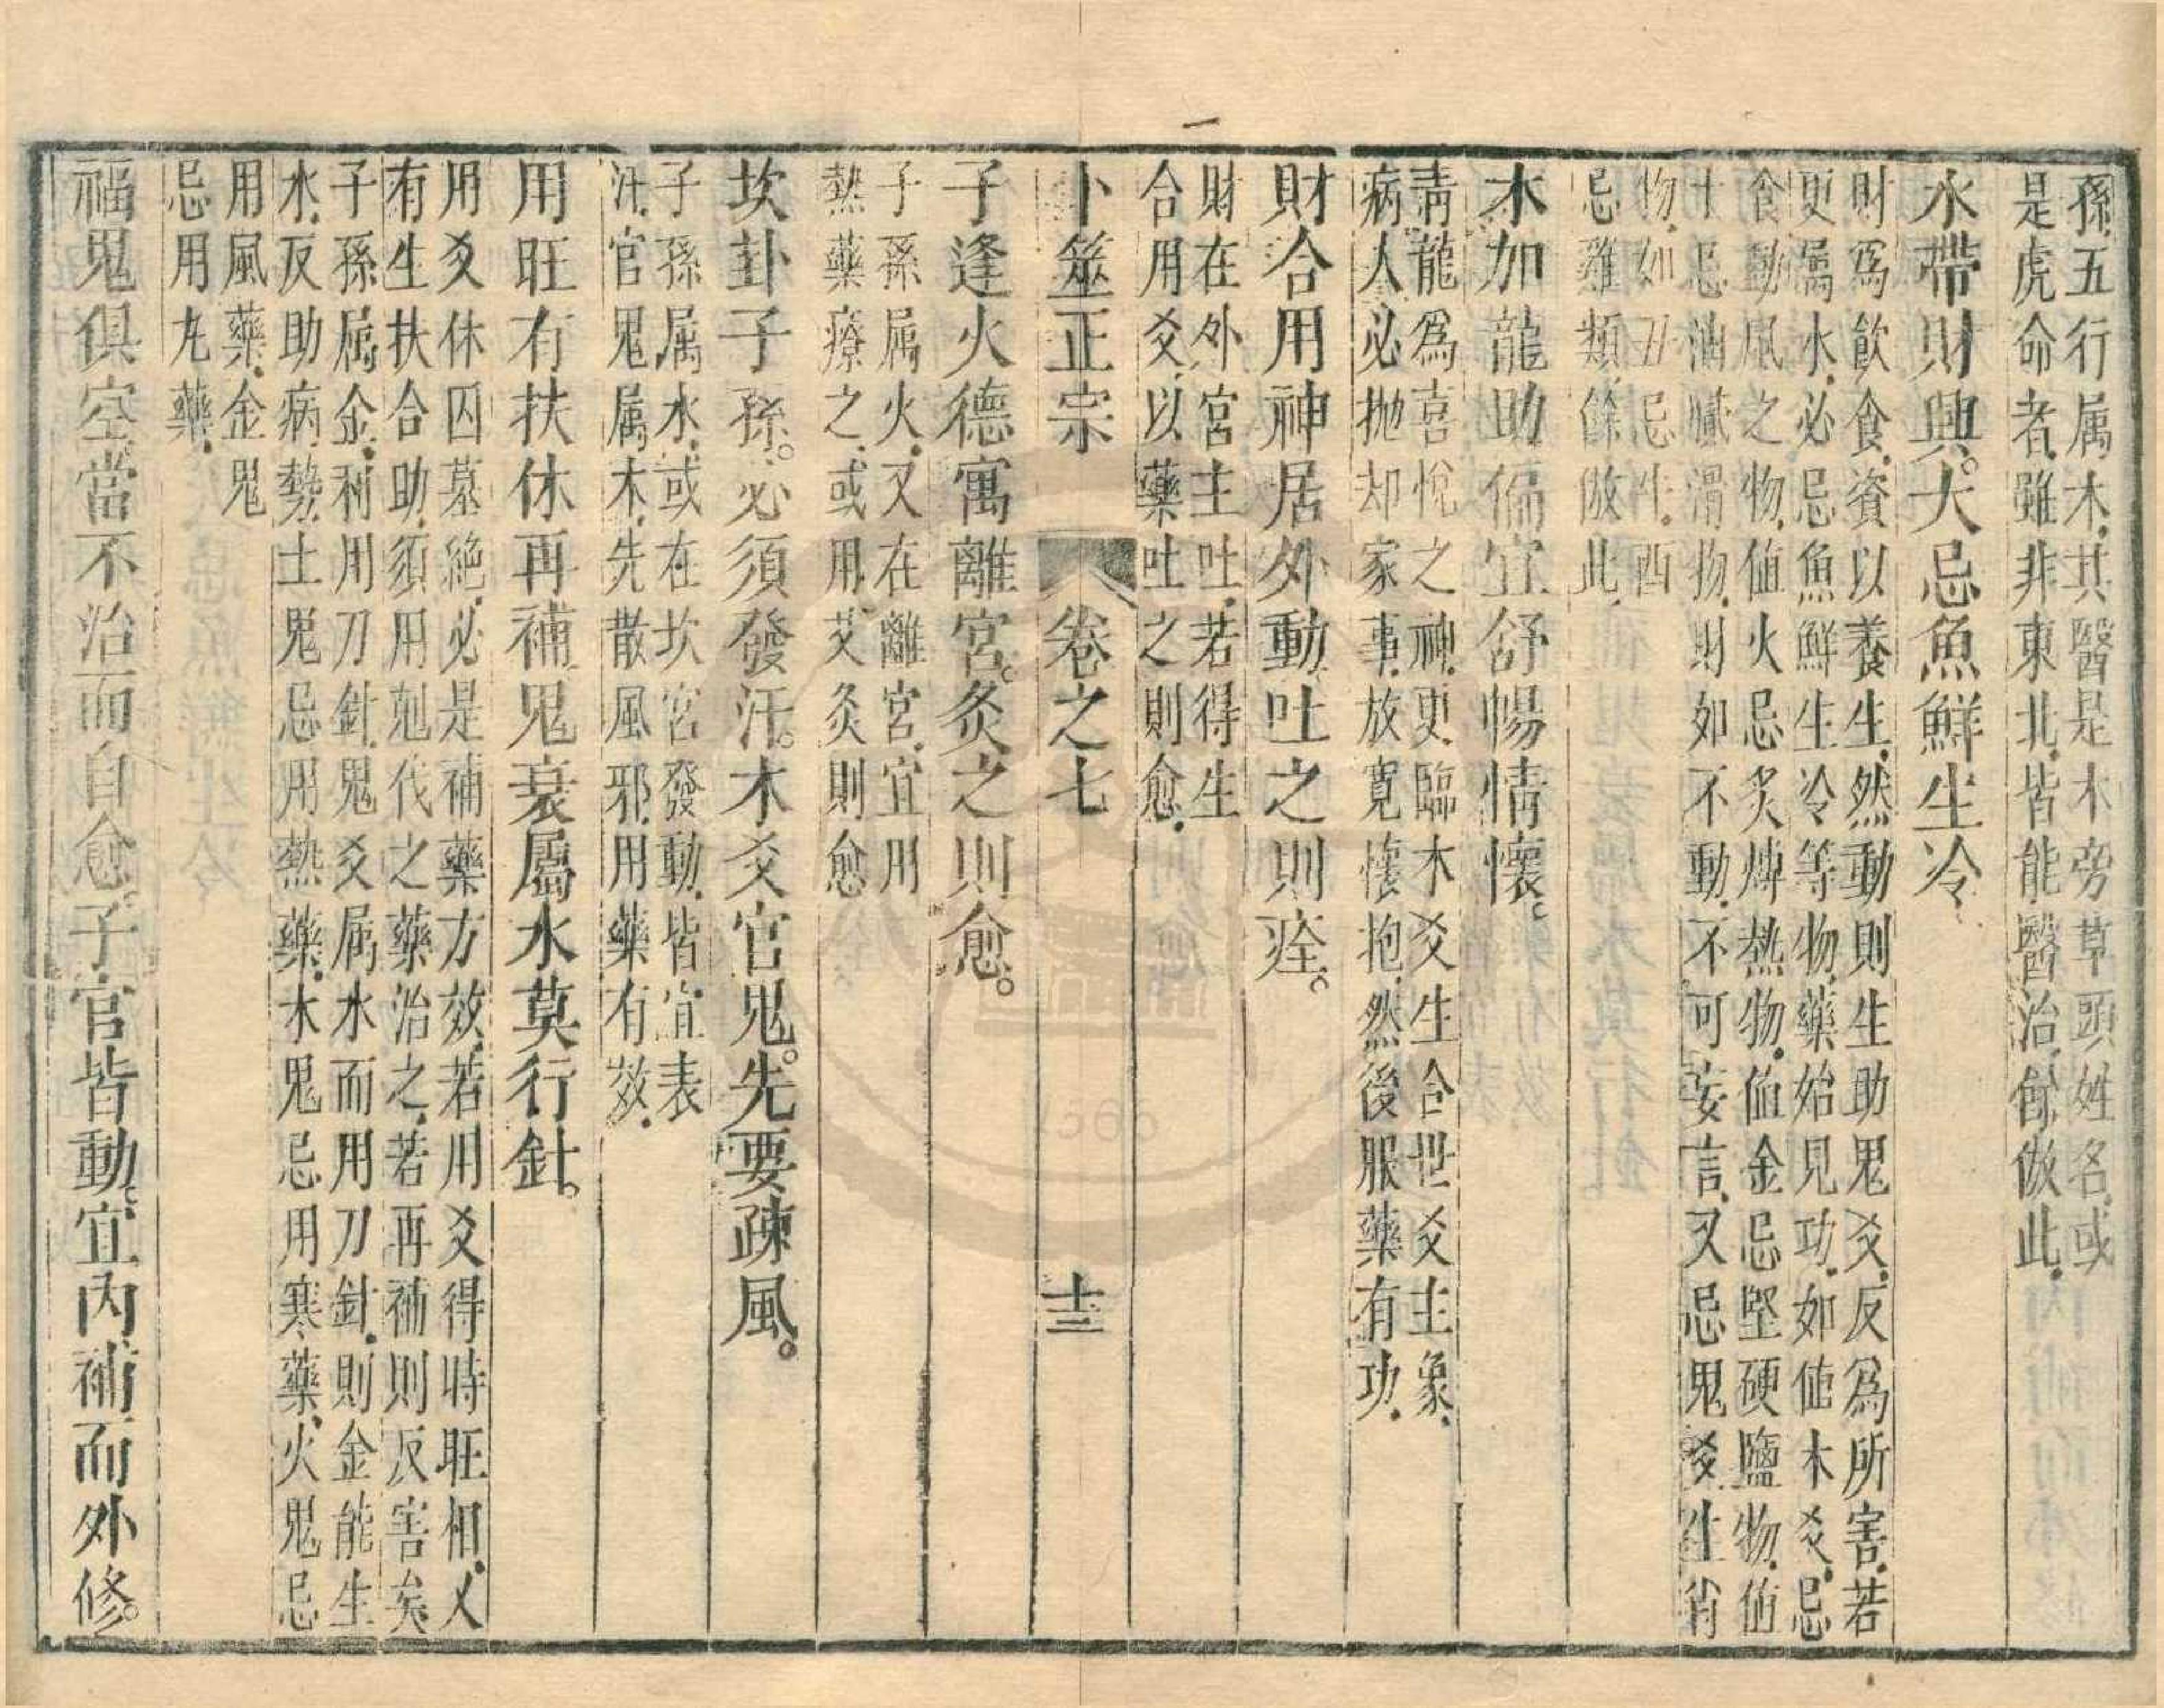 孫五行属木其醫是木旁草頭姓名或
是虎命者雖非東北皆能醫治餘倣此
水帶財興大忌魚鮮生冷
財爲飲食資以養生然動則生助鬼爻反爲所害若
更属水必忌魚鮮生冷等物藥始見功如值木爻忌
食動風之物值火忌炙煿熱物值金忌堅硬鹽物值
土忌油膩滑物財如不動不可妄言又忌鬼爻生肖
物如丑忌牛酉
忌雞類餘倣此
木加龍助偏宜舒暢情懷
靑龍爲喜悅之神更臨木爻生合世爻主象
病人必抛却家事放寬懷抱然後服藥有功
財合用神居外動吐之則痊
財在外宮主吐若得生
合用爻以藥吐之則愈
卜筮正宗 卷之七 十三
子逢火德寓離宮灸之則愈
子孫属火又在離宮宜用
熱藥療之或用艾灸則愈
坎卦子孫必須發汗木爻官鬼先要疎風
子孫属水或在坎宮發動皆宜表
汗官鬼属木先散風邪用藥有效
用旺有扶休再補鬼衰屬水莫行針
用爻休囚墓絶必是補藥方效若用爻得時旺相又
有生扶合助須用尅伐之藥治之若再補則反害矣
子孫属金利用刀針鬼爻属水而用刀針則金能生
水反助病勢土鬼忌用熱藥木鬼忌用寒藥火鬼忌
用風藥金鬼
忌用丸藥
福鬼俱空當不治而自愈子官皆動宜內補而外修